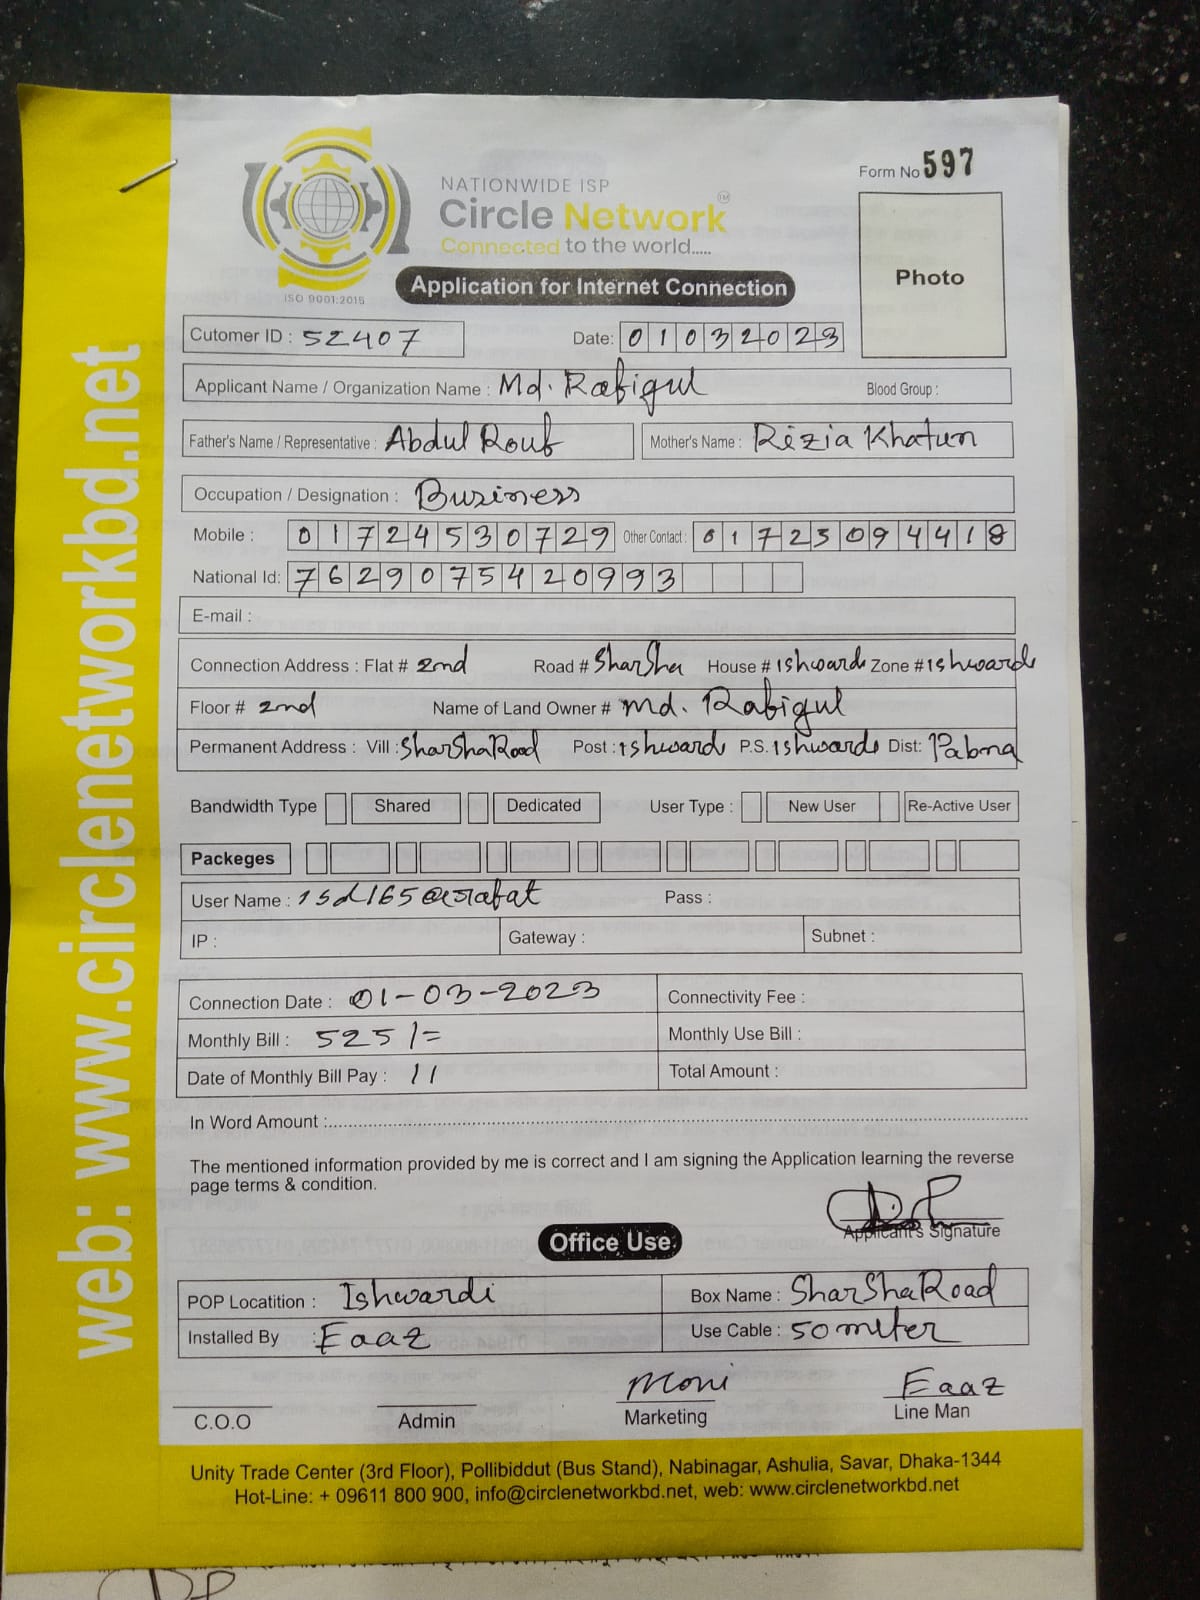 Form No 597
NATIONWIDE ISP
Circle Network TM
Connected to the world.....
ISO 9001:2015
Application for Internet Connection
Photo
Cutomer ID : 52407 Date: 01032023
Applicant Name / Organization Name : Md. Rabiqul Blood Group :
Father's Name / Representative : Abdul Rouf Mother's Name : Rizia Khatun
Occupation / Designation : Business
Mobile : 01724530729 Other Contact : 01723094418
National Id: 7629075420993
E-mail :
Connection Address : Flat # 2nd Road # SharSha House # ishwardi Zone # ishwardi
Floor # 2nd Name of Land Owner # Md. Rabiqul
Permanent Address : Vill : SharShaRoad Post : ishwardi P.S. ishwardi Dist: Pabna
Bandwidth Type Shared Dedicated User Type : New User Re-Active User
Packeges
User Name : Pass :
IP : Gateway : Subnet :
Connection Date : 01-03-2023 Connectivity Fee :
Monthly Bill : 525/= Monthly Use Bill :
Date of Monthly Bill Pay : 11 Total Amount :
In Word Amount :
The mentioned information provided by me is correct and I am signing the Application learning the reverse
page terms & condition.
Applicant's Signature
Office Use
POP Locatition : Ishwardi Box Name : SharShaRoad
Installed By : Eaaz Use Cable : 50 miter
Moni Eaaz
C.O.O Admin Marketing Line Man
Unity Trade Center (3rd Floor), Pollibiddut (Bus Stand), Nabinagar, Ashulia, Savar, Dhaka-1344
Hot-Line: + 09611 800 900, info@circlenetworkbd.net, web: www.circlenetworkbd.net
web: www.circlenetworkbd.net